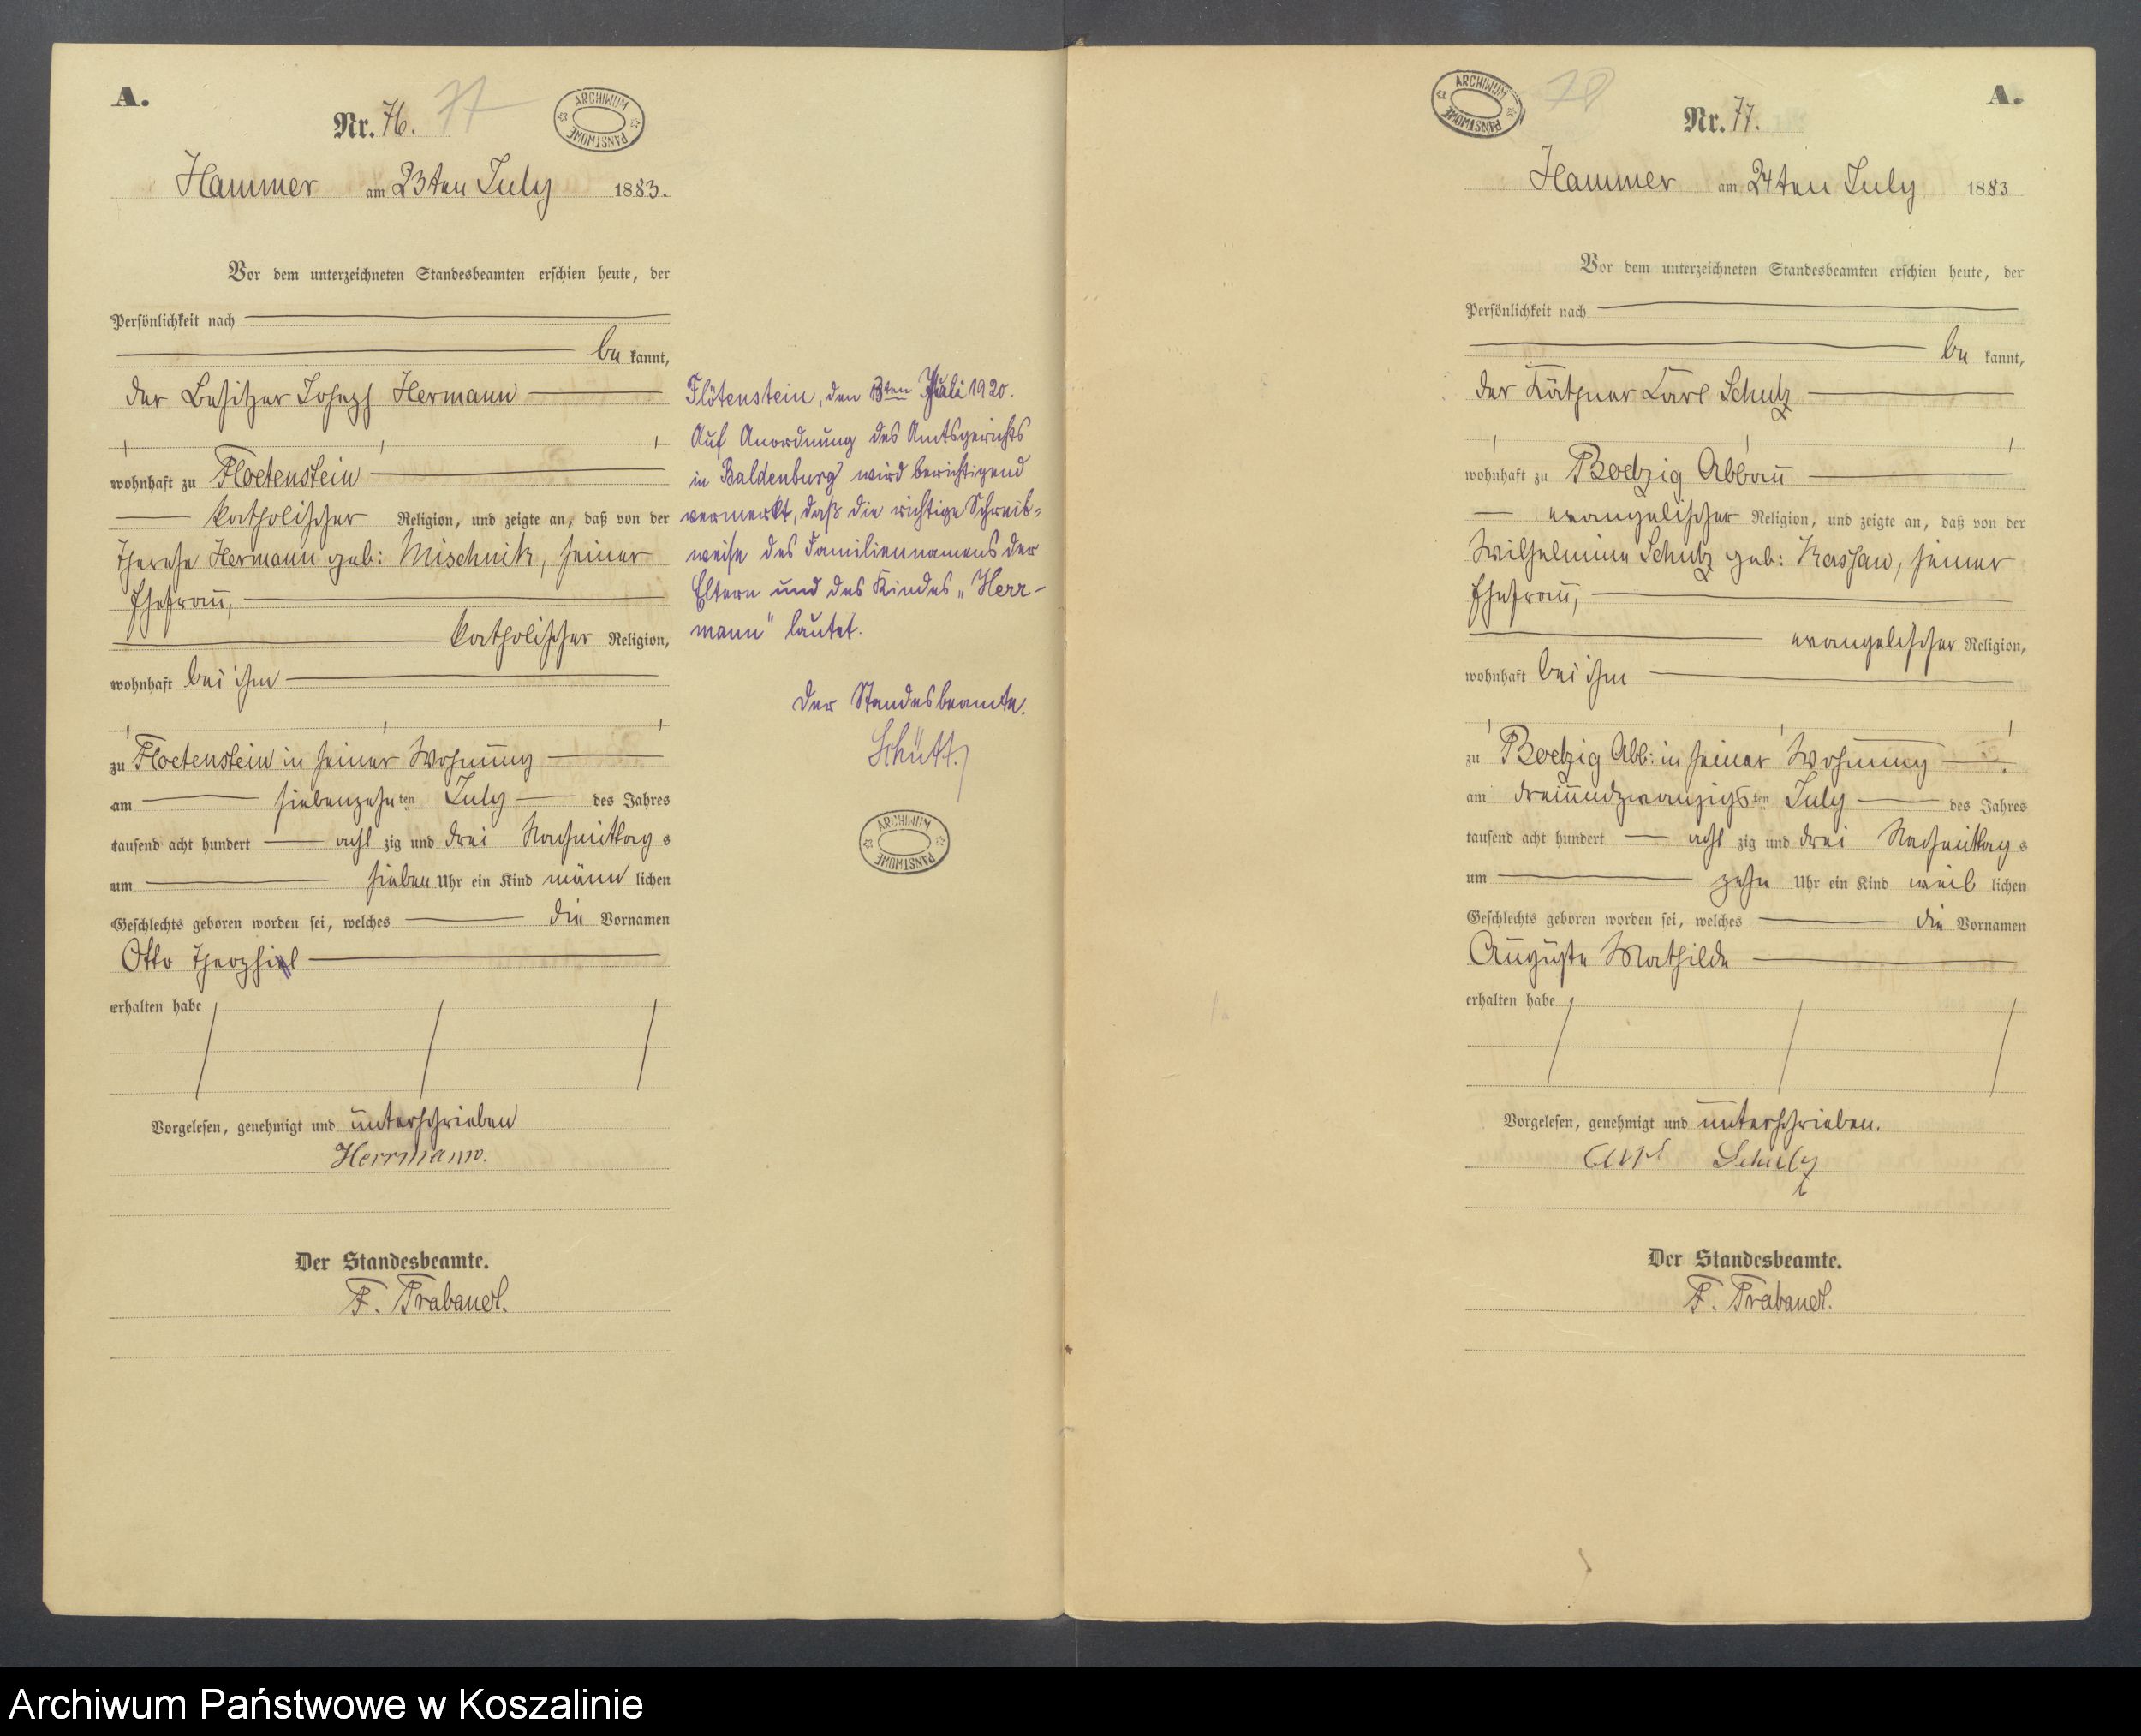 A.
Nr. 76.
77
ARCHIWUM PAŃSTWOWE
Hammer am 23ten July 1883.
Vor dem unterzeichneten Standesbeamten erschien heute, der
Persönlichkeit nach
be kannt,
der Besitzer Joseph Hermann
wohnhaft zu Floetenstein
katholischer Religion, und zeigte an, daß von der
Therese Hermann geb: Mischnik, seiner
Ehefrau,
katholischer Religion,
wohnhaft bei ihm
zu Floetenstein in seiner Wohnung
am siebenzehnten July des Jahres
tausend acht hundert acht zig und drei Nachmittags
um sieben Uhr ein Kind männ lichen
Geschlechts geboren worden sei, welches die Vornamen
Otto Theophil
erhalten habe
Vorgelesen, genehmigt und unterschrieben
Herrmann.
Der Standesbeamte.
F. Trabandt.
Flötenstein, den 3ten Juli 1920.
Auf Anordnung des Amtsgerichts
in Baldenburg wird berichtigend
vermerkt, daß die richtige Schreib-
weise des Familiennamens der
Eltern und des Kindes „Herr-
mann" lautet.
Der Standesbeamte.
Schütt.
ARCHIWUM PAŃSTWOWE
ARCHIWUM PAŃSTWOWE
78
A.
Nr. 77.
Hammer am 24ten July 1883
Vor dem unterzeichneten Standesbeamten erschien heute, der
Persönlichkeit nach
be kannt,
der Käthner Carl Schulz
wohnhaft zu Boetzig Abbau
evangelischer Religion, und zeigte an, daß von der
Wilhelmine Schulz geb: Kassau, seiner
Ehefrau,
evangelischer Religion,
wohnhaft bei ihm
zu Boetzig Abb: in seiner Wohnung
am dreiundzwanzigsten July des Jahres
tausend acht hundert acht zig und drei Nachmittags
um zehn Uhr ein Kind weib lichen
Geschlechts geboren worden sei, welches die Vornamen
Auguste Mathilde
erhalten habe
Vorgelesen, genehmigt und unterschrieben.
Carl Schulz
Der Standesbeamte.
F. Trabandt.
Archiwum Państwowe w Koszalinie